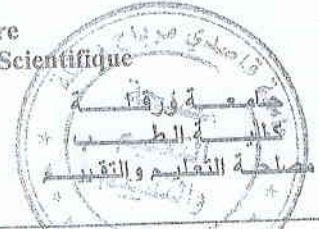 re
Scientifique
جامعة ورقلة
كلية الطب
مصلحة التعليم والتقييم